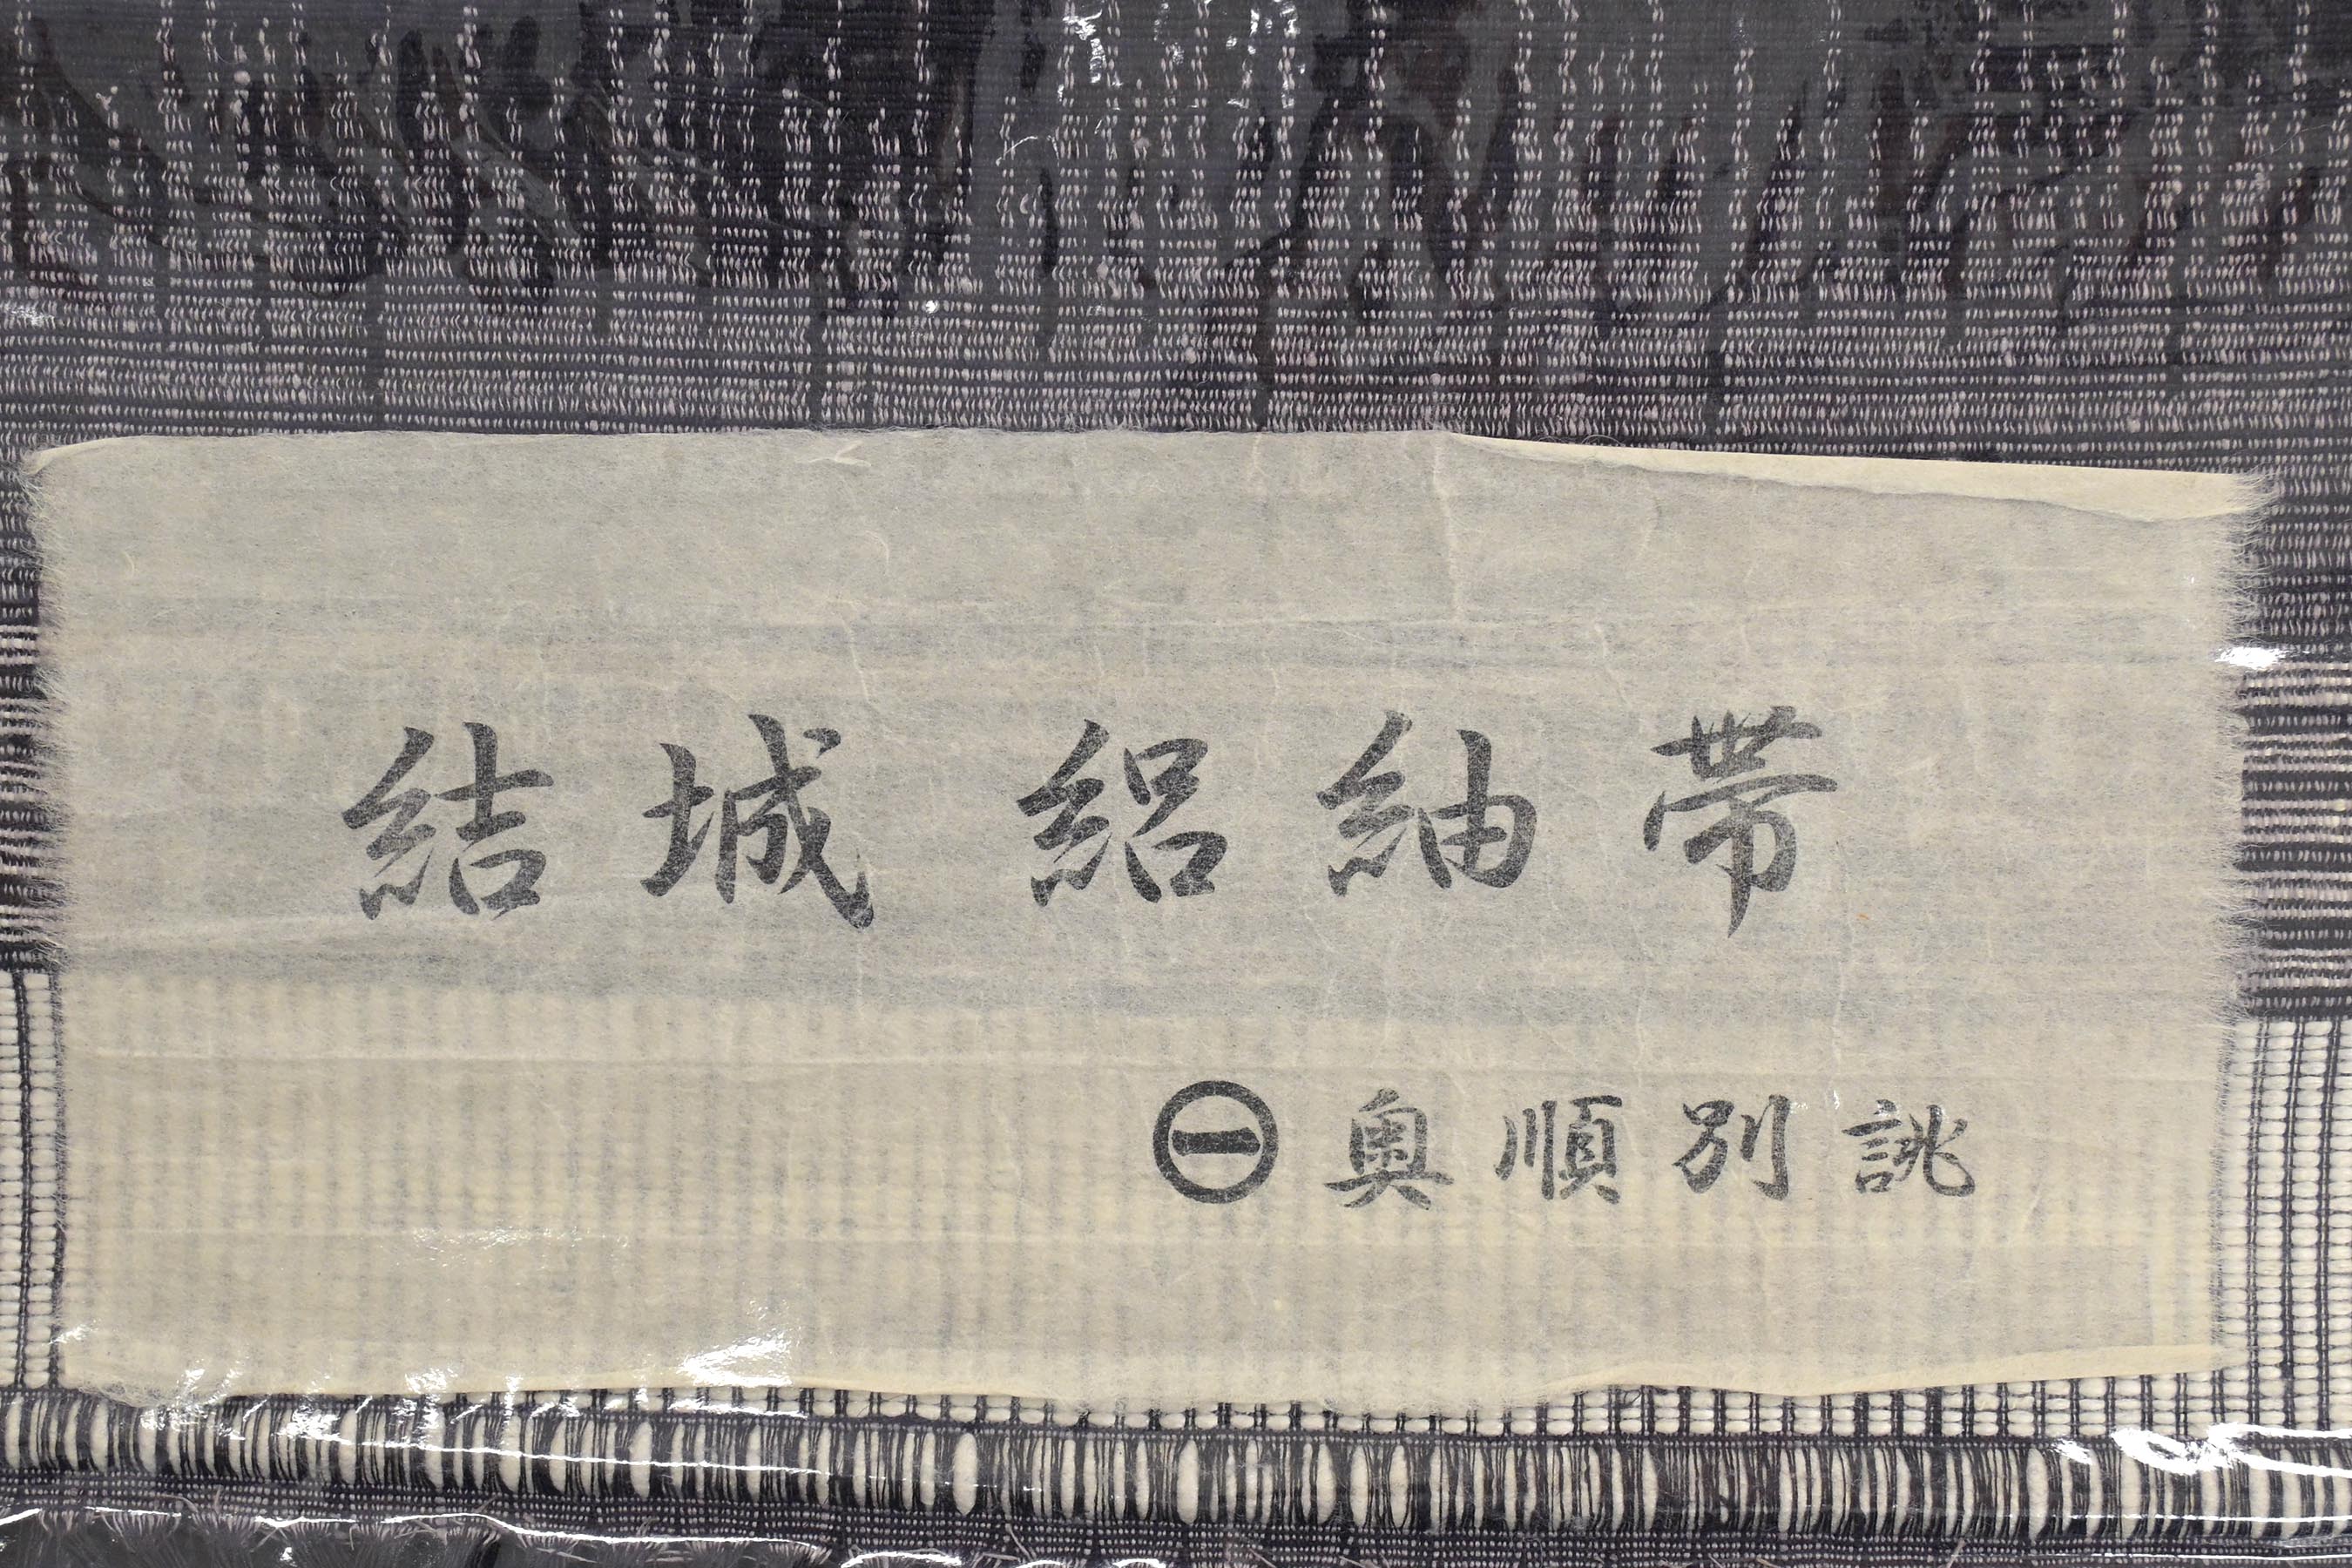 結城 絽紬帯
㊀奥順別誂